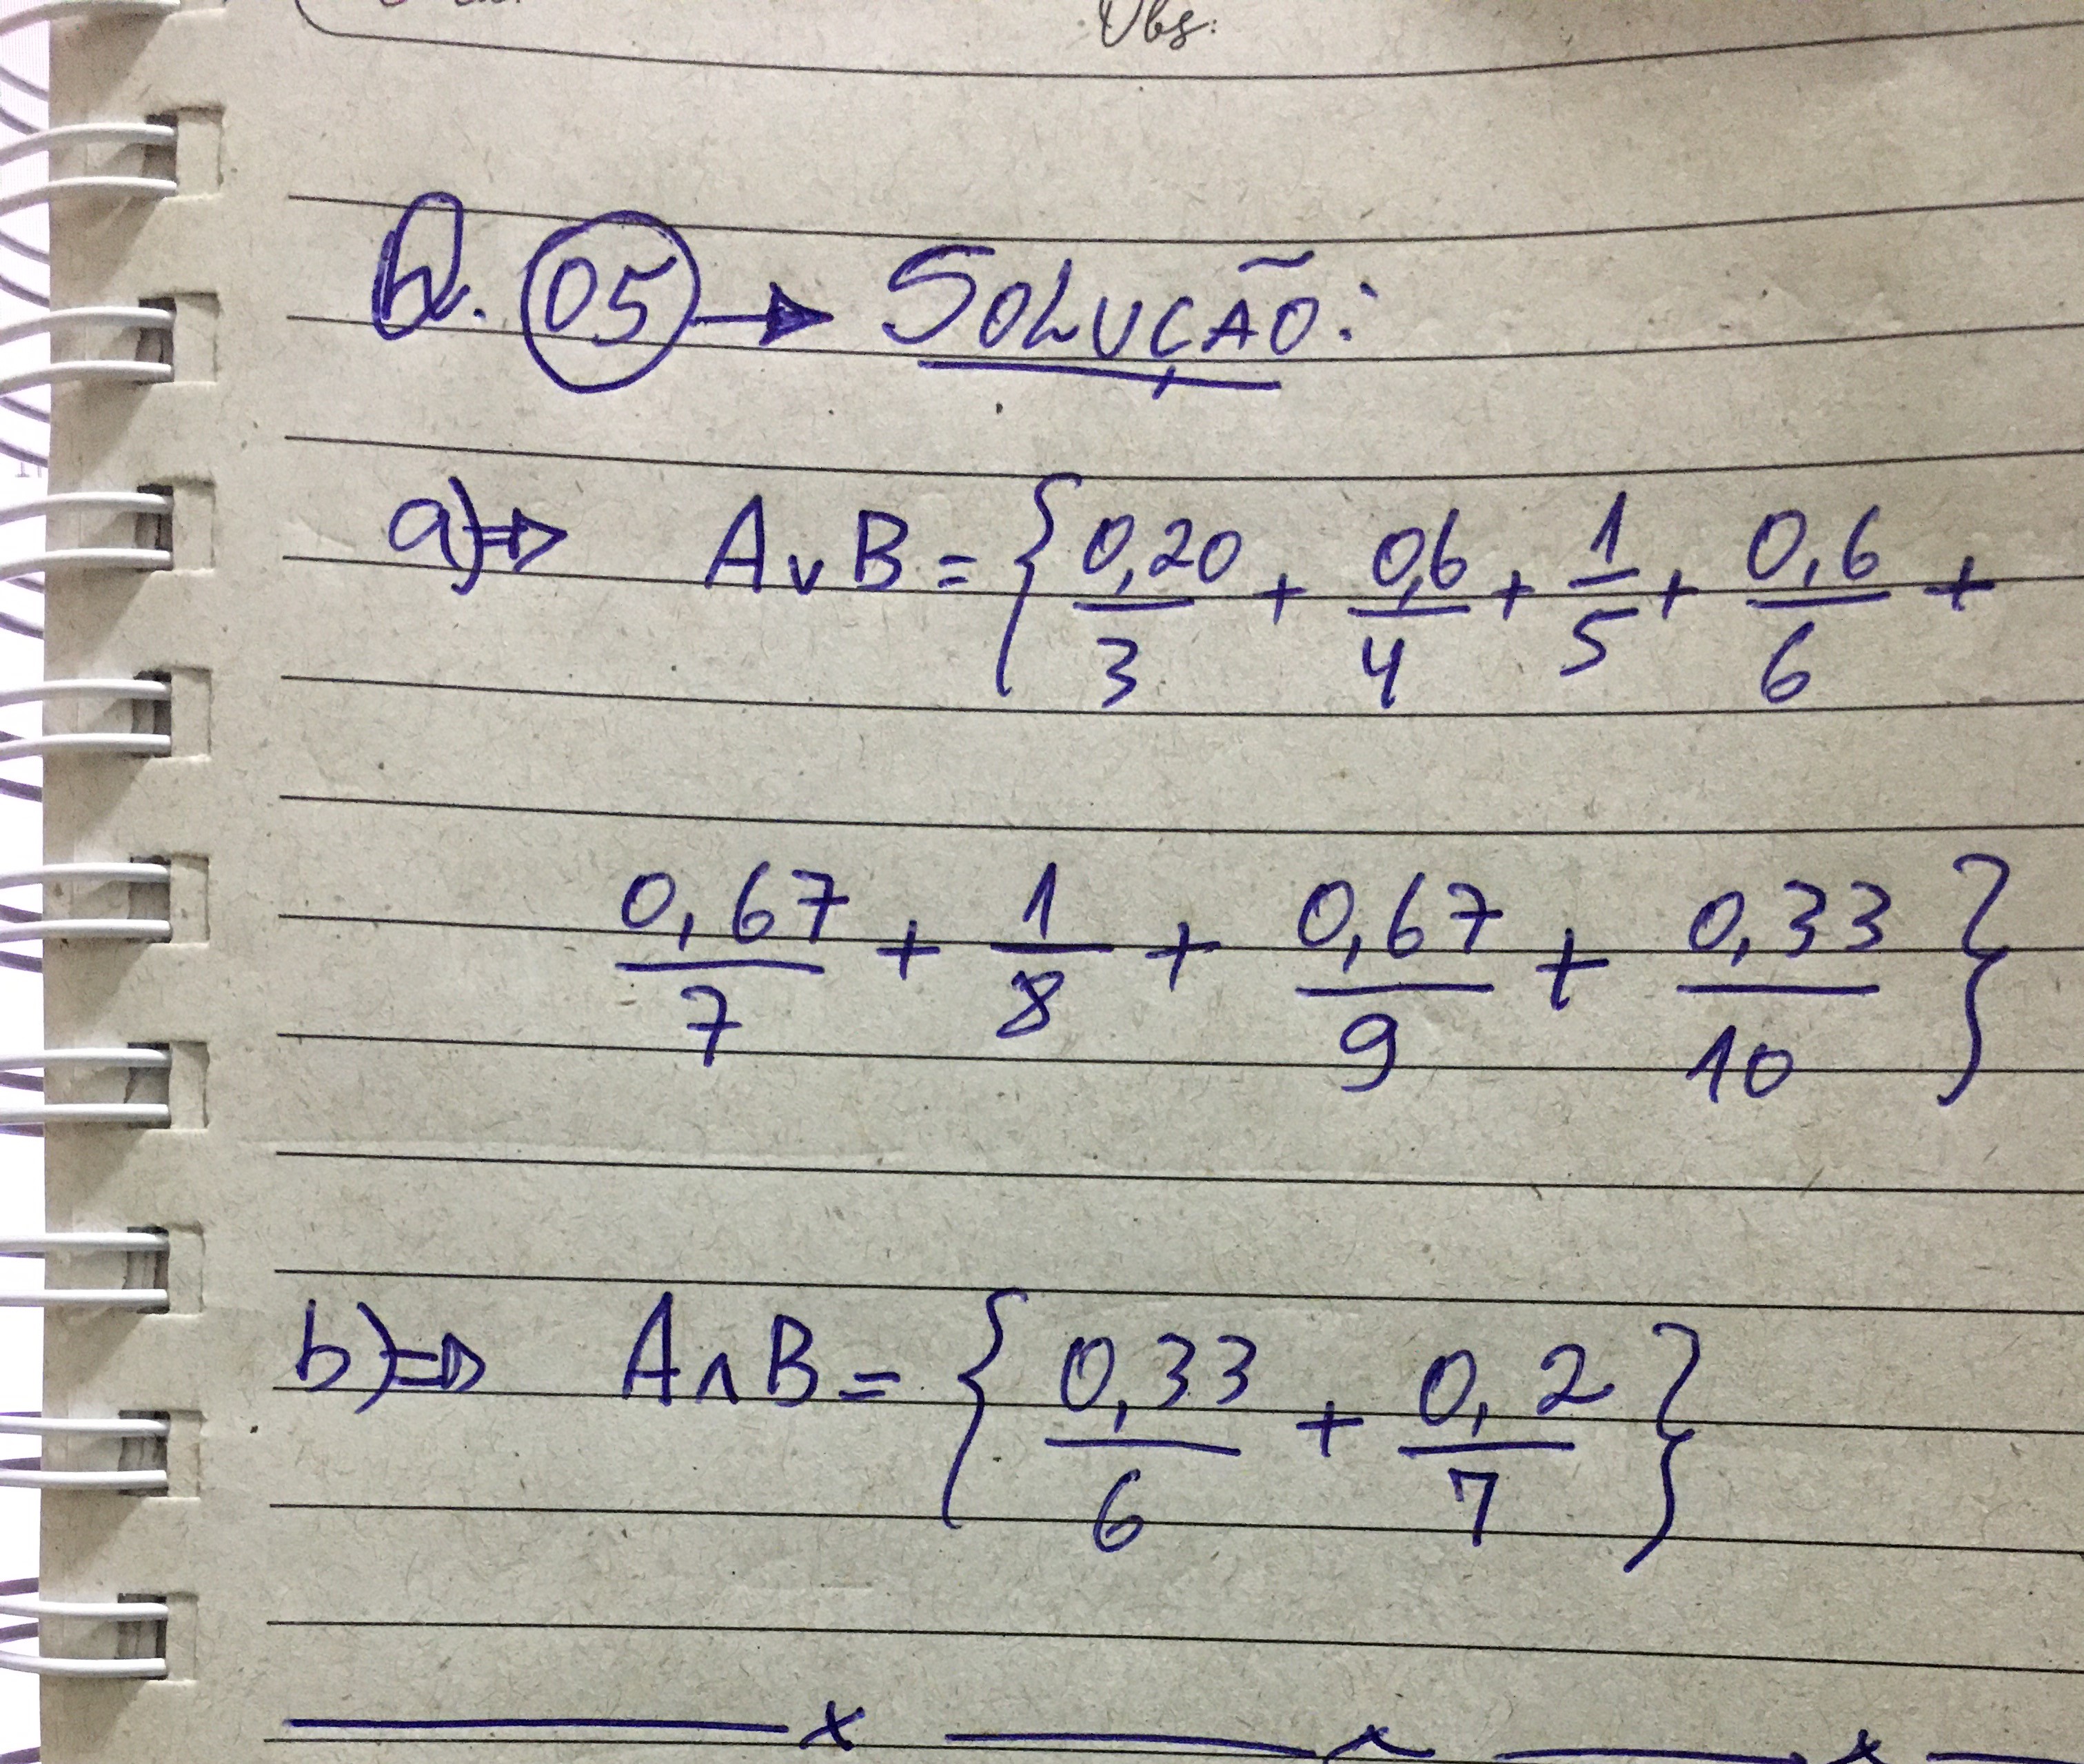 Obs:
Q. 05 → SOLUÇÃO:
a) ⇒ A ∨ B = { 0,20/3 + 0,6/4 + 1/5 + 0,6/6 +
0,67/7 + 1/8 + 0,67/9 + 0,33/10 }
b) ⇒ A ∧ B = { 0,33/6 + 0,2/7 }